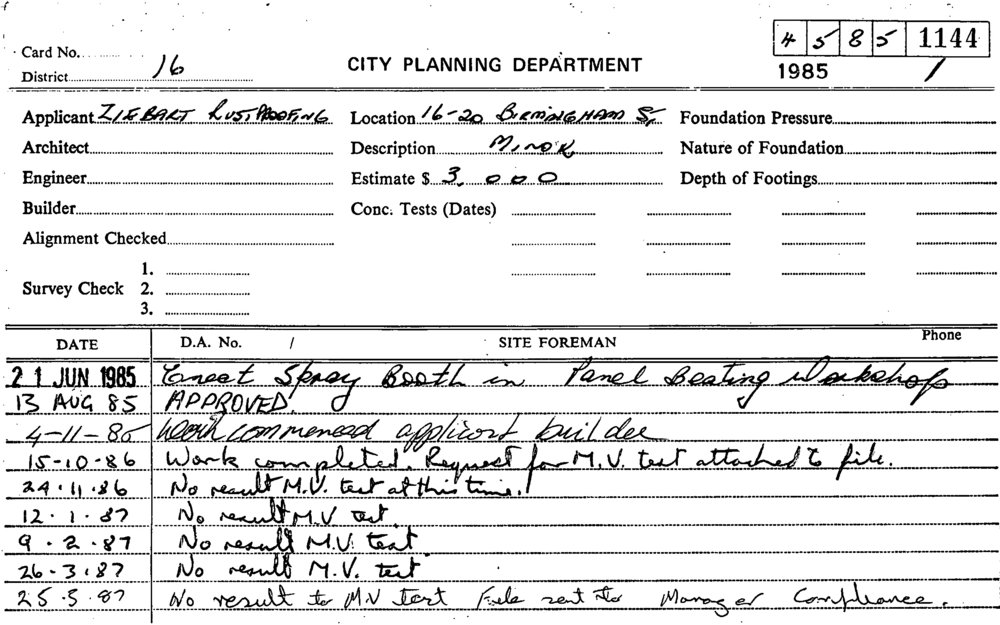 4 5 8 5 1144
Card No.
16
CITY PLANNING DEPARTMENT
District
1985 1
Applicant ZIEBART RUSTPROOFING Location 16-20 BIRMINGHAM ST, Foundation Pressure
Architect Description MINOR Nature of Foundation
Engineer Estimate $ 3,000 Depth of Footings
Builder Conc. Tests (Dates)
Alignment Checked
1.
Survey Check 2.
3.
DATE D.A. No. / SITE FOREMAN Phone
21 JUN 1985 Erect Spray Booth in Panel Beating Workshop
13 AUG 85 APPROVED.
4-11-85 Work commenced applicant builder
15-10-86 Work completed. Request for M.V. test attached to file.
24.11.86 No result M.V. test at this time.
12.1.87 No result M.V test.
9.2.87 No result M.V. test
26.3.87 No result M.V. test
25.5.87 No result to M.V test File sent to Manager Compliance.